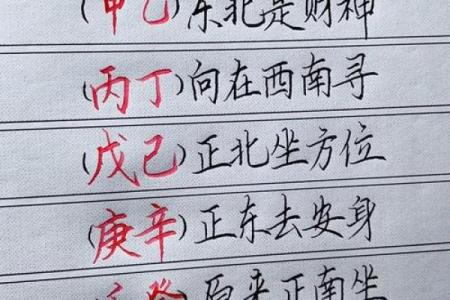 (甲乙)东北是财神
(丙丁)向在西南寻
(戊己)正北坐方位
(庚辛)正东去安身
(壬癸)原来正南坐